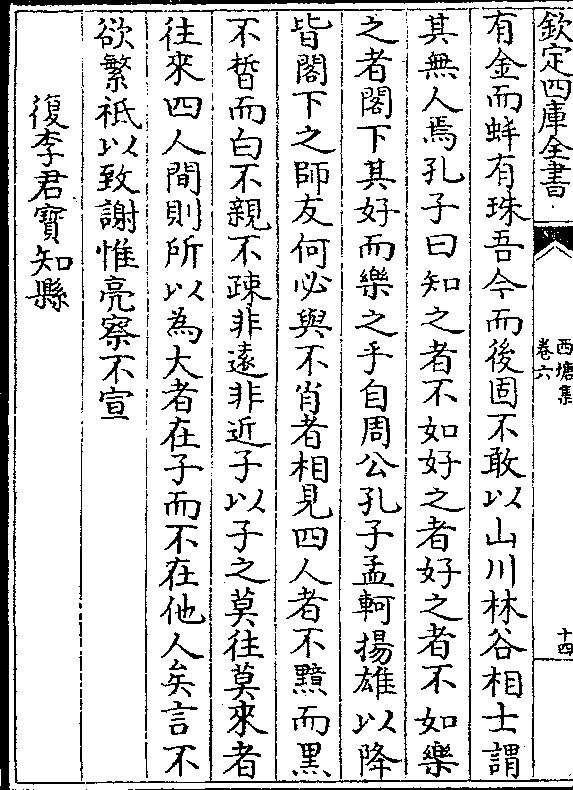 欽定四庫全書
西塘集
卷六
十四
有金而蚌有珠吾今而後固不敢以山川林谷相士謂
其無人焉孔子曰知之者不如好之者好之者不如樂
之者閣下其好而樂之乎自周公孔子孟軻揚雄以降
皆閣下之師友何必與不肖者相見四人者不黰而黒
不晳而白不親不疎非遠非近子以子之莫往莫來者
往來四人間則所以為大者在子而不在他人矣言不
欲繁祇以致謝惟亮察不宣
復李君寳知縣